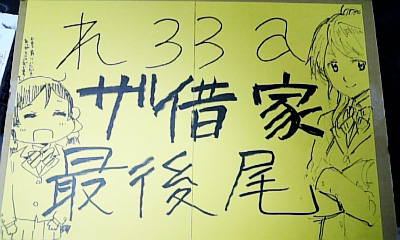 れ33a
ザ借家
最後尾